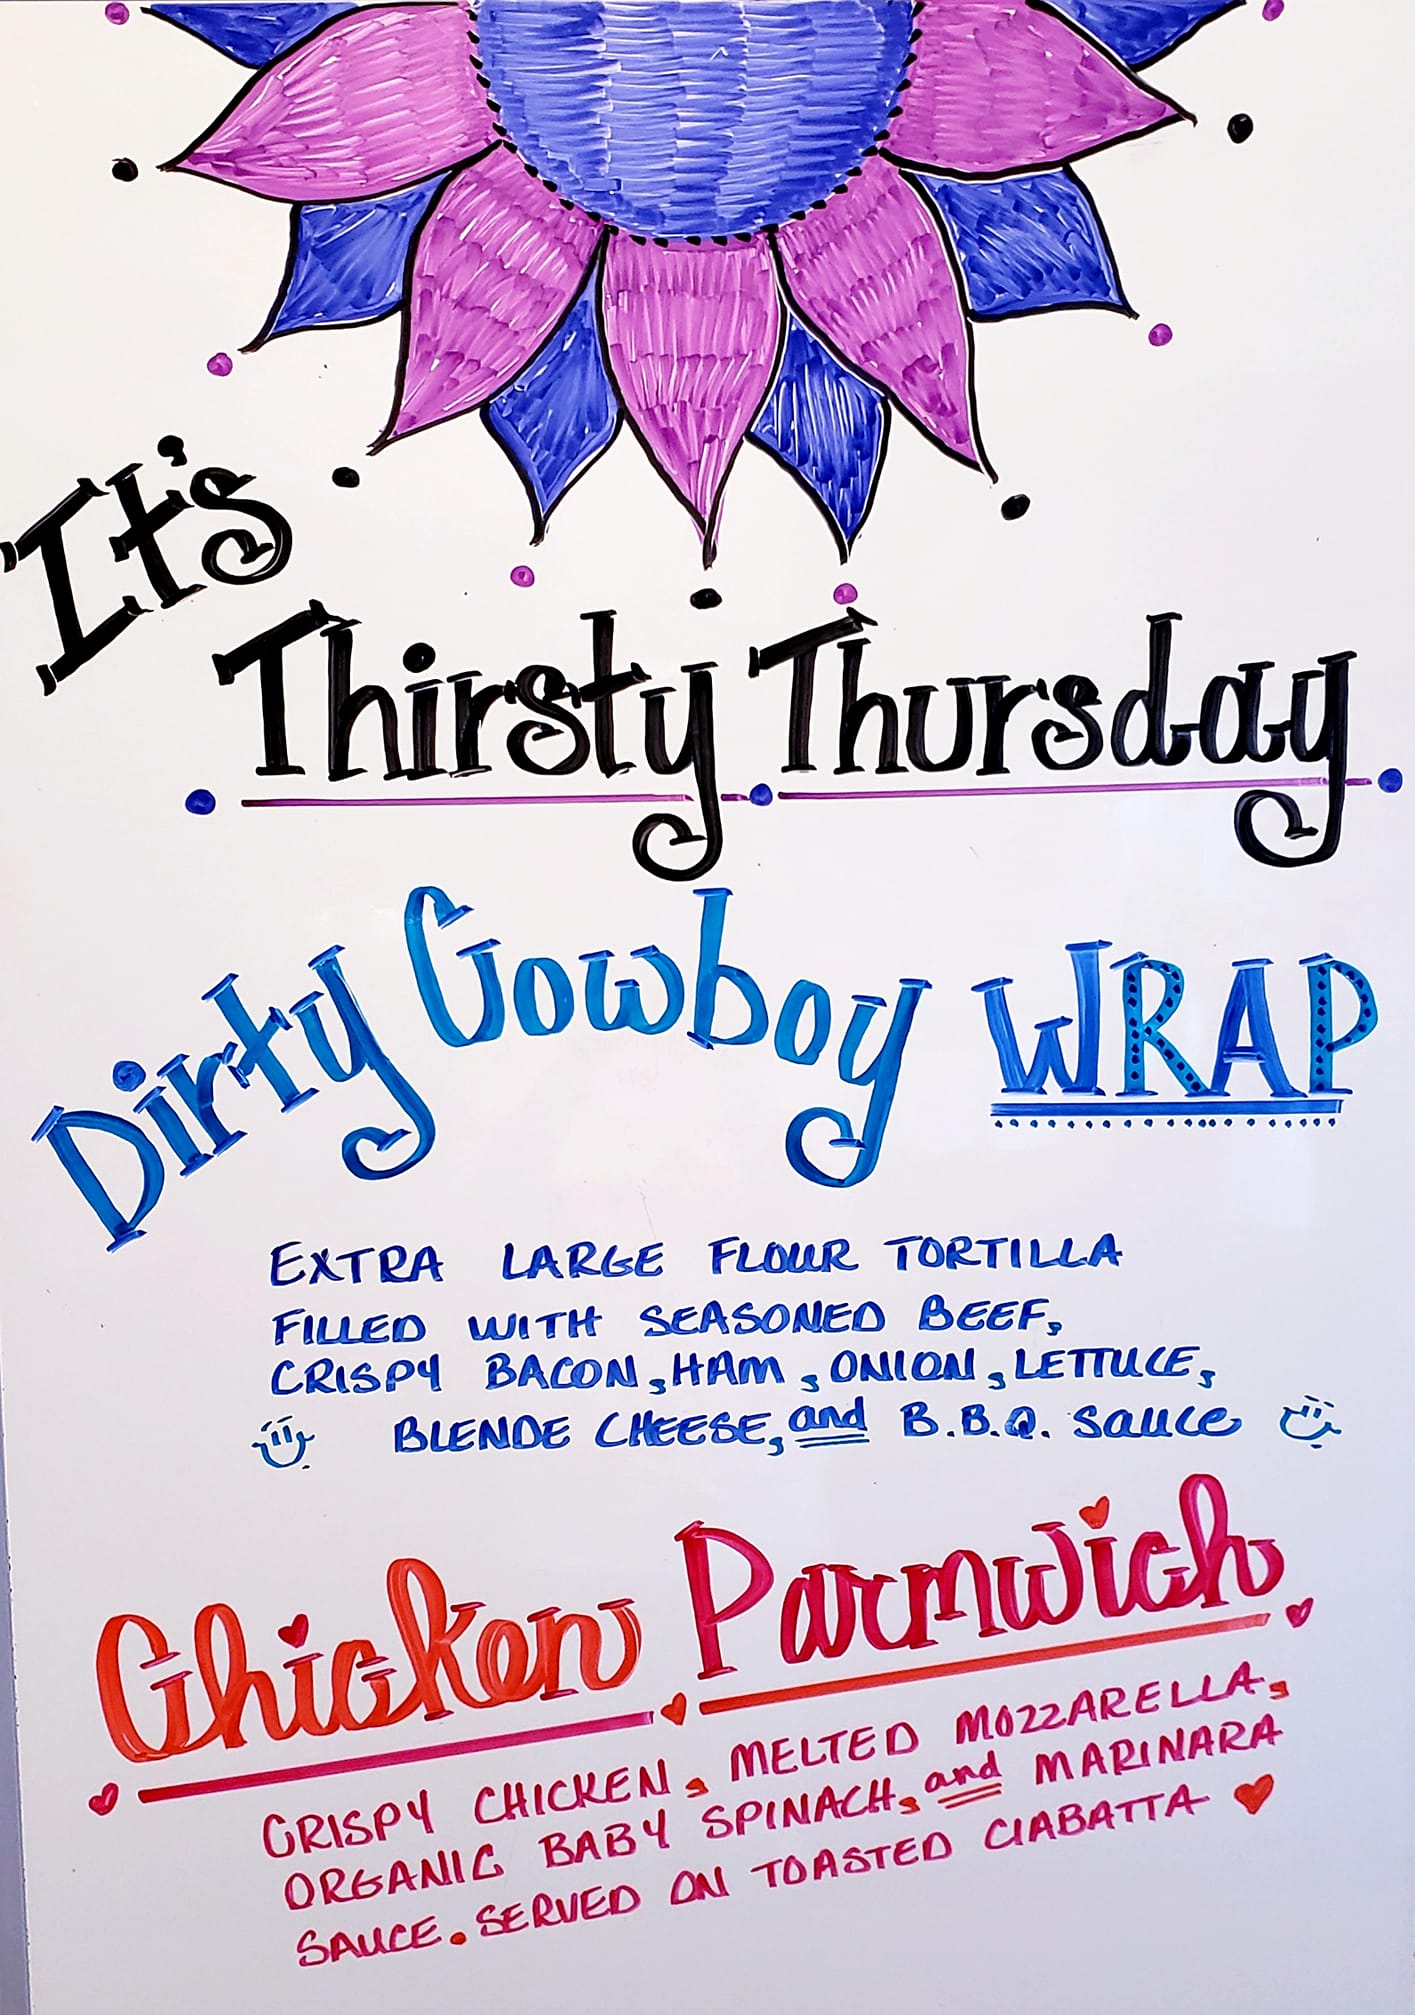 It's
Thirsty Thursday
Dirty Cowboy WRAP
EXTRA LARGE FLOUR TORTILLA
FILLED WITH SEASONED BEEF,
CRISPY BACON, HAM, ONION, LETTUCE,
BLENDE CHEESE, and B.B.Q. Sauce
Chicken Parmwich
CRISPY CHICKEN, MELTED MOZZARELLA,
ORGANIC BABY SPINACH, and MARINARA
SAUCE. SERVED ON TOASTED CIABATTA